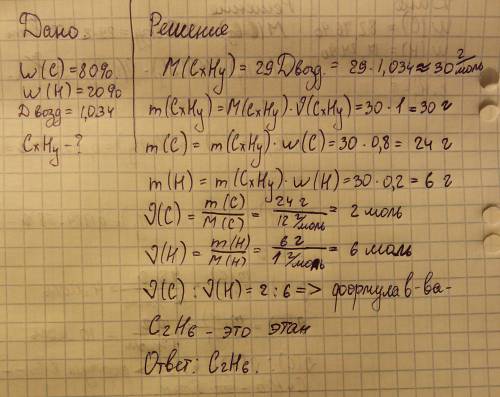 Дано
w(C)=80%
w(H)=20%
Dвозд=1,034
CxHy-?
Решение
M(CxHy)=29Dвозд.=29·1,034≈30 г/моль
m(CxHy)=M(CxHy)·ν(CxHy)=30·1=30 г
m(C)=m(CxHy)·w(C)=30·0,8=24 г
m(H)=m(CxHy)·w(H)=30·0,2=6 г
ν(C)=m(C)/M(C)=24 г/12 г/моль=2 моль
ν(H)=m(H)/M(H)=6 г/1 г/моль=6 моль
ν(C):ν(H)=2:6=> формула в-ва-
C2H6-это этан
Ответ: C2H6.